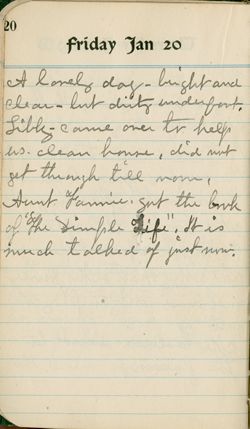 20
Friday Jan 20
A lovely day - bright and
clear - but dirty underfoot.
Libby - came over to help
us. clean house, did not
get through till noon,
Aunt Fannie. got the book
of "The Simple Life". It is
much talked of just now.